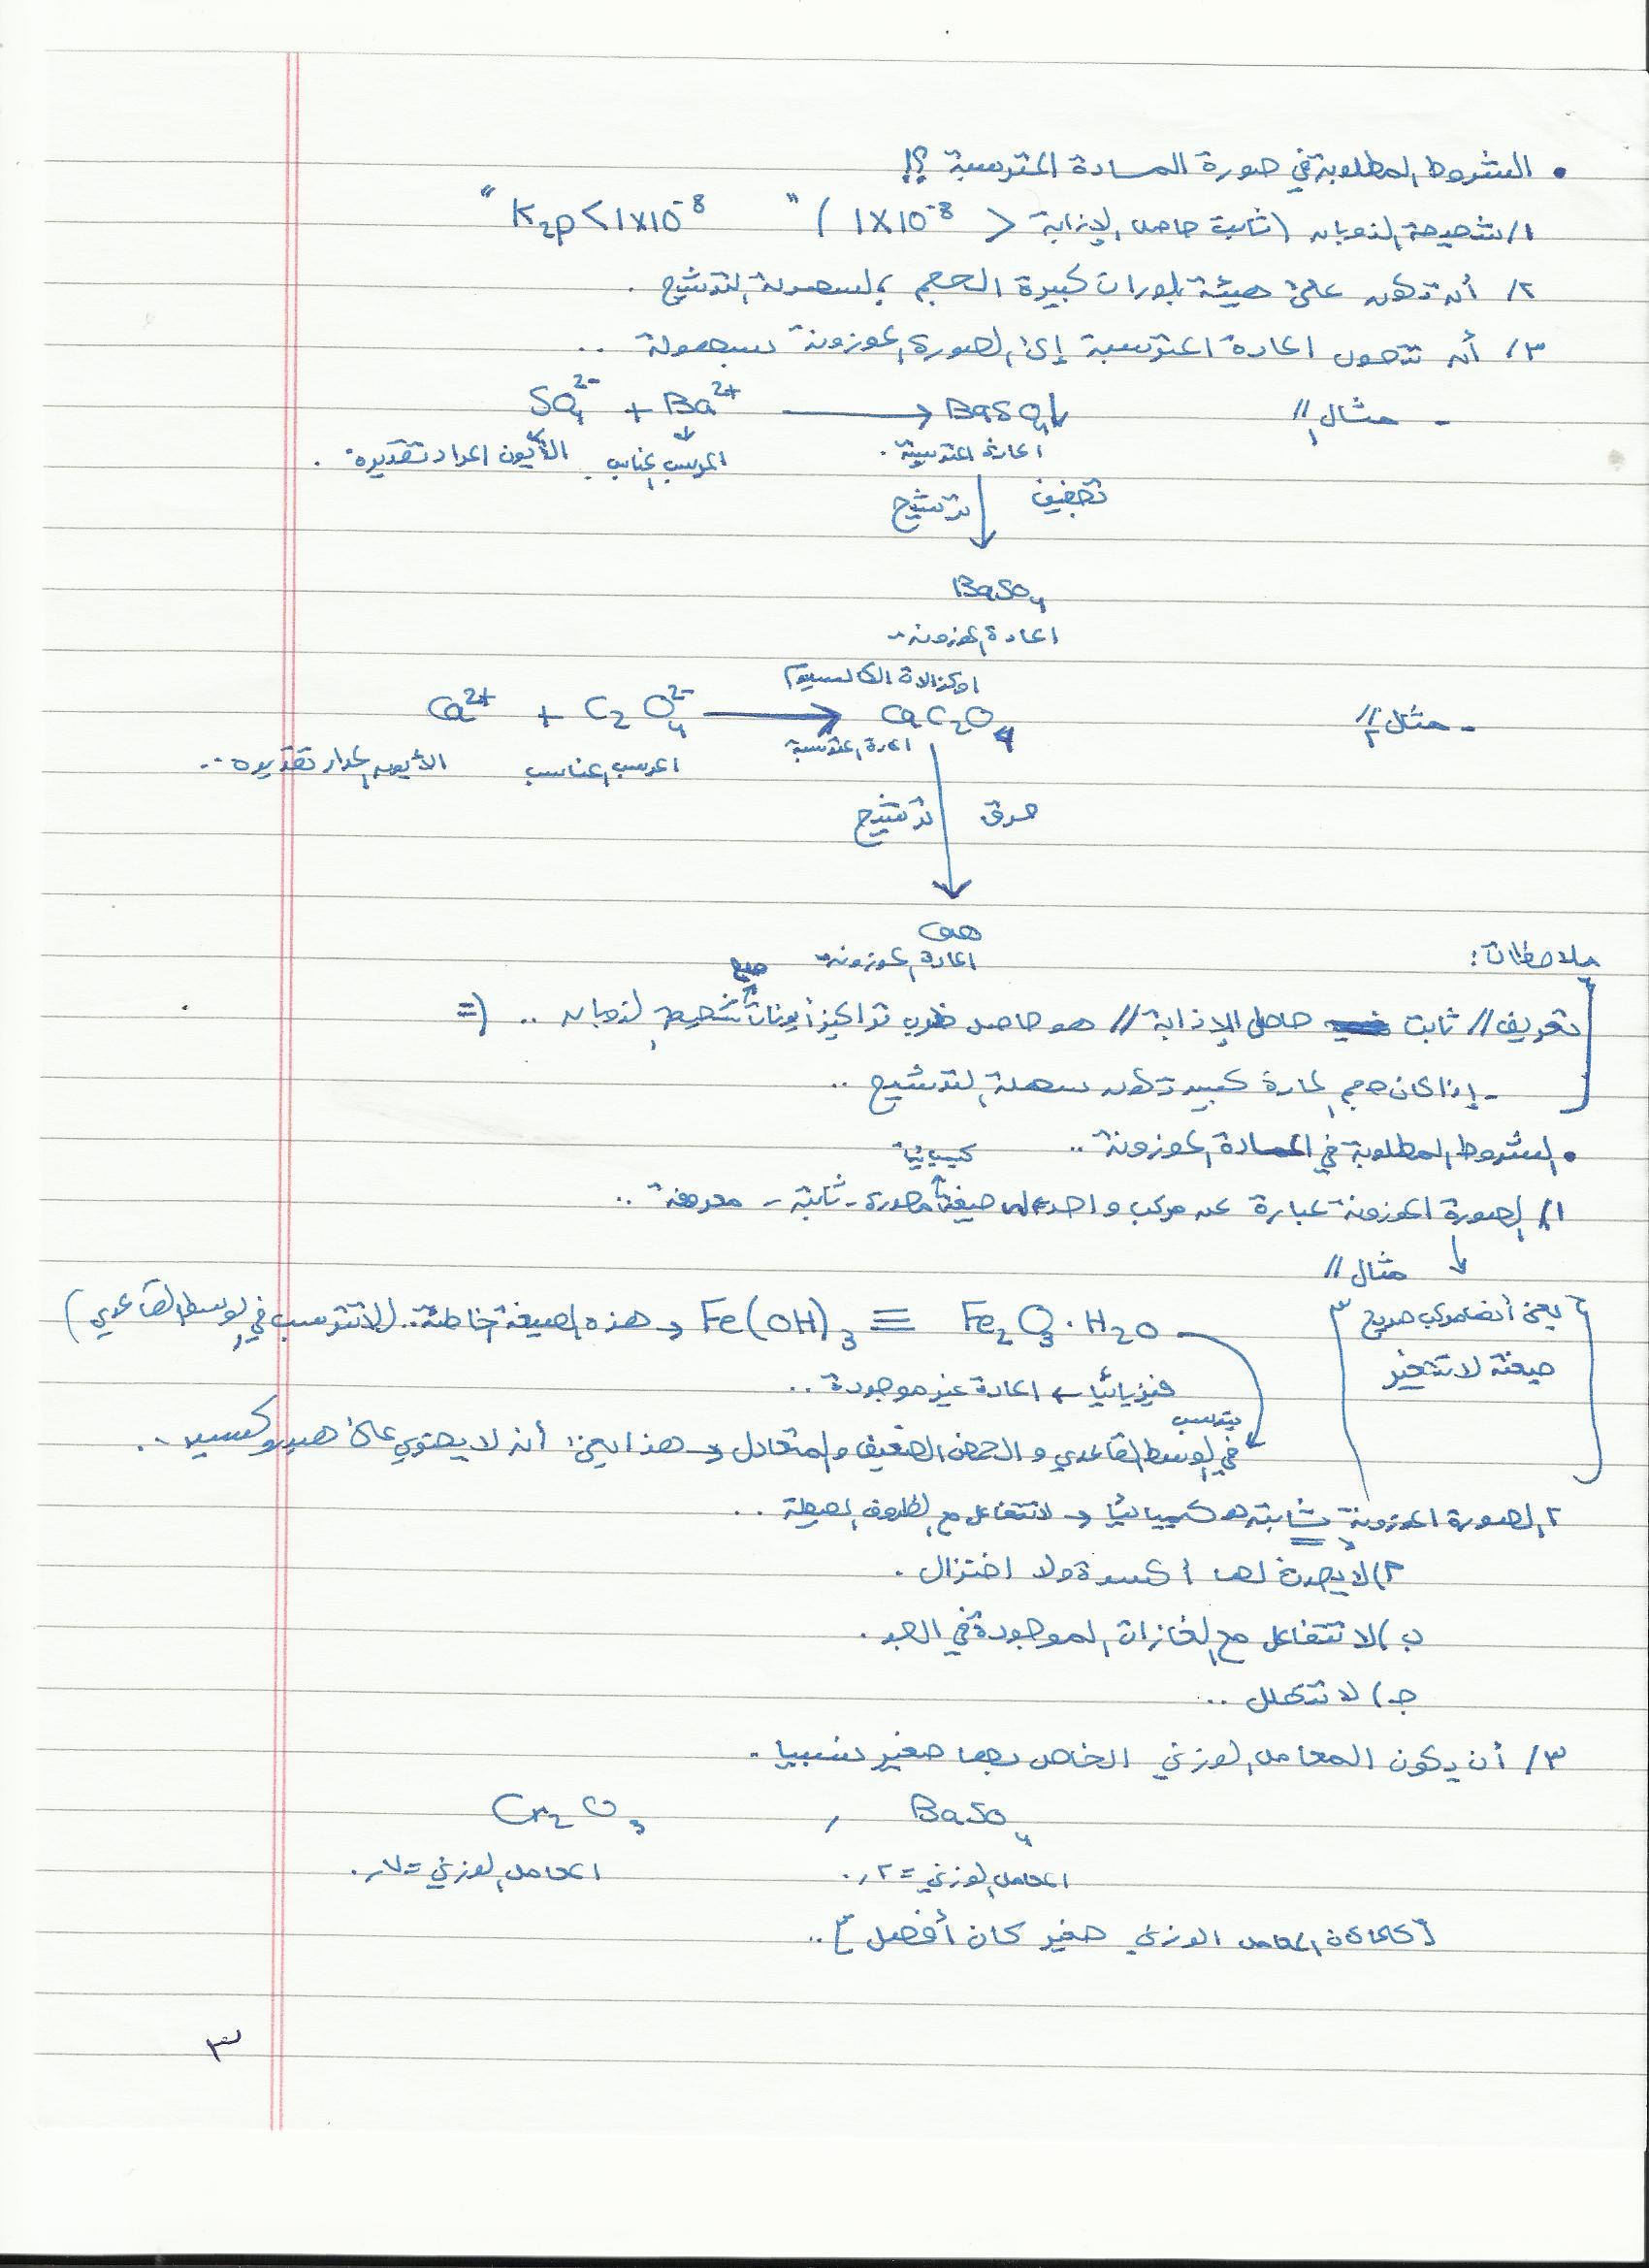 • الشروط المطلوبة في صورة المادة المترسبة ؟!
١/ شحيحة الذوبان (ثابت حاصل الإذابة > 1x10⁻⁸) " K₂p < 1x10⁻⁸ "
٢/ أن تكون على هيئة بلورات كبيرة الحجم ، لسهولة الترشيح .
٣/ أن تتحول المادة المترسبة إلى الصورة الموزونة بسهولة ..
- مثال ١// SO₄²⁻ + Ba²⁺ ⟶ BaSO₄↓
الأيون المراد تقديره . المرسب المناسب المادة المترسبة .
ترشيح ↓ تجفيف
BaSO₄
المادة الموزونة
اوكزالات الكالسيوم
- مثال ٢// Ca²⁺ + C₂O₄²⁻ ⟶ CaC₂O₄
الأيون المراد تقديره .. المرسب المناسب المادة المترسبة
ترشيح ↓ حرق
CaO
المادة الموزونة
ملاحظات :
تعريف // ثابت حاصل الإذابة // هو حاصل ضرب تراكيز أيونات ملح شحيح الذوبان .. (=
- إذا كان حجم المادة كبير تكون سهلة الترشيح ..
• الشروط المطلوبة في المادة الموزونة ..
١/ الصورة الموزونة عبارة عن مركب واحد له صيغة كيميائية محددة - ثابتة - معروفة ..
↓ مثال //
{ يعني أنه مركب صريح صيغته لا تتغير }
Fe₂O₃ · H₂O ≡ Fe(OH)₃ هذه الصيغة خاطئة .. (لا تترسب في الوسط القاعدي)
فيزيائيًا ← المادة غير موجودة ..
يترسب
في الوسط القاعدي والحمض الضعيف والمتعادل هذا يعني : أنه لا يحتوي على هيدروكسيد ..
٢/ الصورة الموزونة ثابتة كيميائيًا لا تتفاعل مع الظروف المحيطة ..
أ) لا يحدث لها أكسدة ولا اختزال .
ب) لا تتفاعل مع الغازات الموجودة في الجو .
جـ) لا تتحلل ..
٣/ أن يكون المعامل الوزني الخاص بها صغير نسبيا .
BaSO₄ , Cr₂O₃
المعامل الوزني = ٢ر٠ المعامل الوزني = ٧ر٠
[ كلما كان المعامل الوزني صغير كان أفضل ] ..
٣